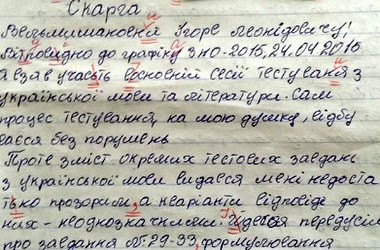 Скарга
Вельмишановня Ігоре Леонідовичу!
Відповидно до графіку зно-2015, 24.04 2015
я взяв участь восновній сесії тестуваня з
української мови та літератури. Сам
процес тестування, на мою думку, відбу
вався без порушень
Проте зміст окремих тестових завдань
з української мови видався мені недоста
тько прозорим, а неаріанти відповіде до
них - неоднозначними. Ідеться передусім
про завдання № 29-33, формулювання